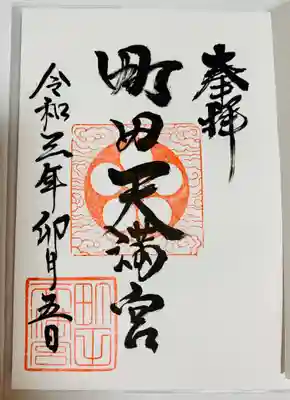 奉拝
町田天満宮
令和三年卯月五日